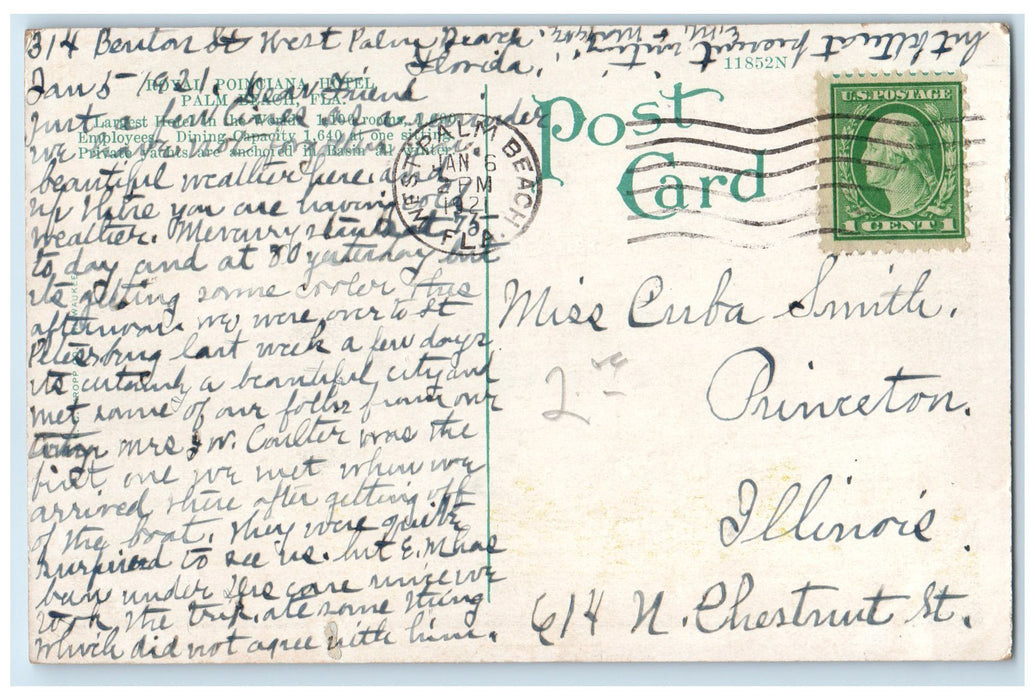 314 Benton St West Palm Beach
Florida.
Jan 5 1921. Dear Friend
Just a few lines as a reminder
we have not
beautiful weather here and
up there you are having cold
weather. Mercury stands at 73
to day and at 80 yesterday but
its getting some cooler this
afternoon. we were over to St
Petersburg last week a few days
its certainly a beautiful city and
met some of our folks from our
Mrs J W. Coulter was the
first one we met when we
arrived there after getting off
of the boat. they were quite
surprised to see us. but E. M has
been under Drs care since we
took the trip, ate some thing
which did not agree with him.
but all at present writing
E.M. &
ROYAL POINCIANA HOTEL
PALM BEACH, FLA.
Largest Hotel in the World. 1,100 rooms,
Employees. Dining Capacity 1,640 at one sitting.
Private yachts are anchored in Basin all winter.
11852N
Post
Card
WEST PALM BEACH.
JAN 6
PM
1921
FLA.
U.S. POSTAGE
1 CENT 1
Miss Cuba Smith.
2
Princeton.
Illinois.
614 N. Chestnut St.